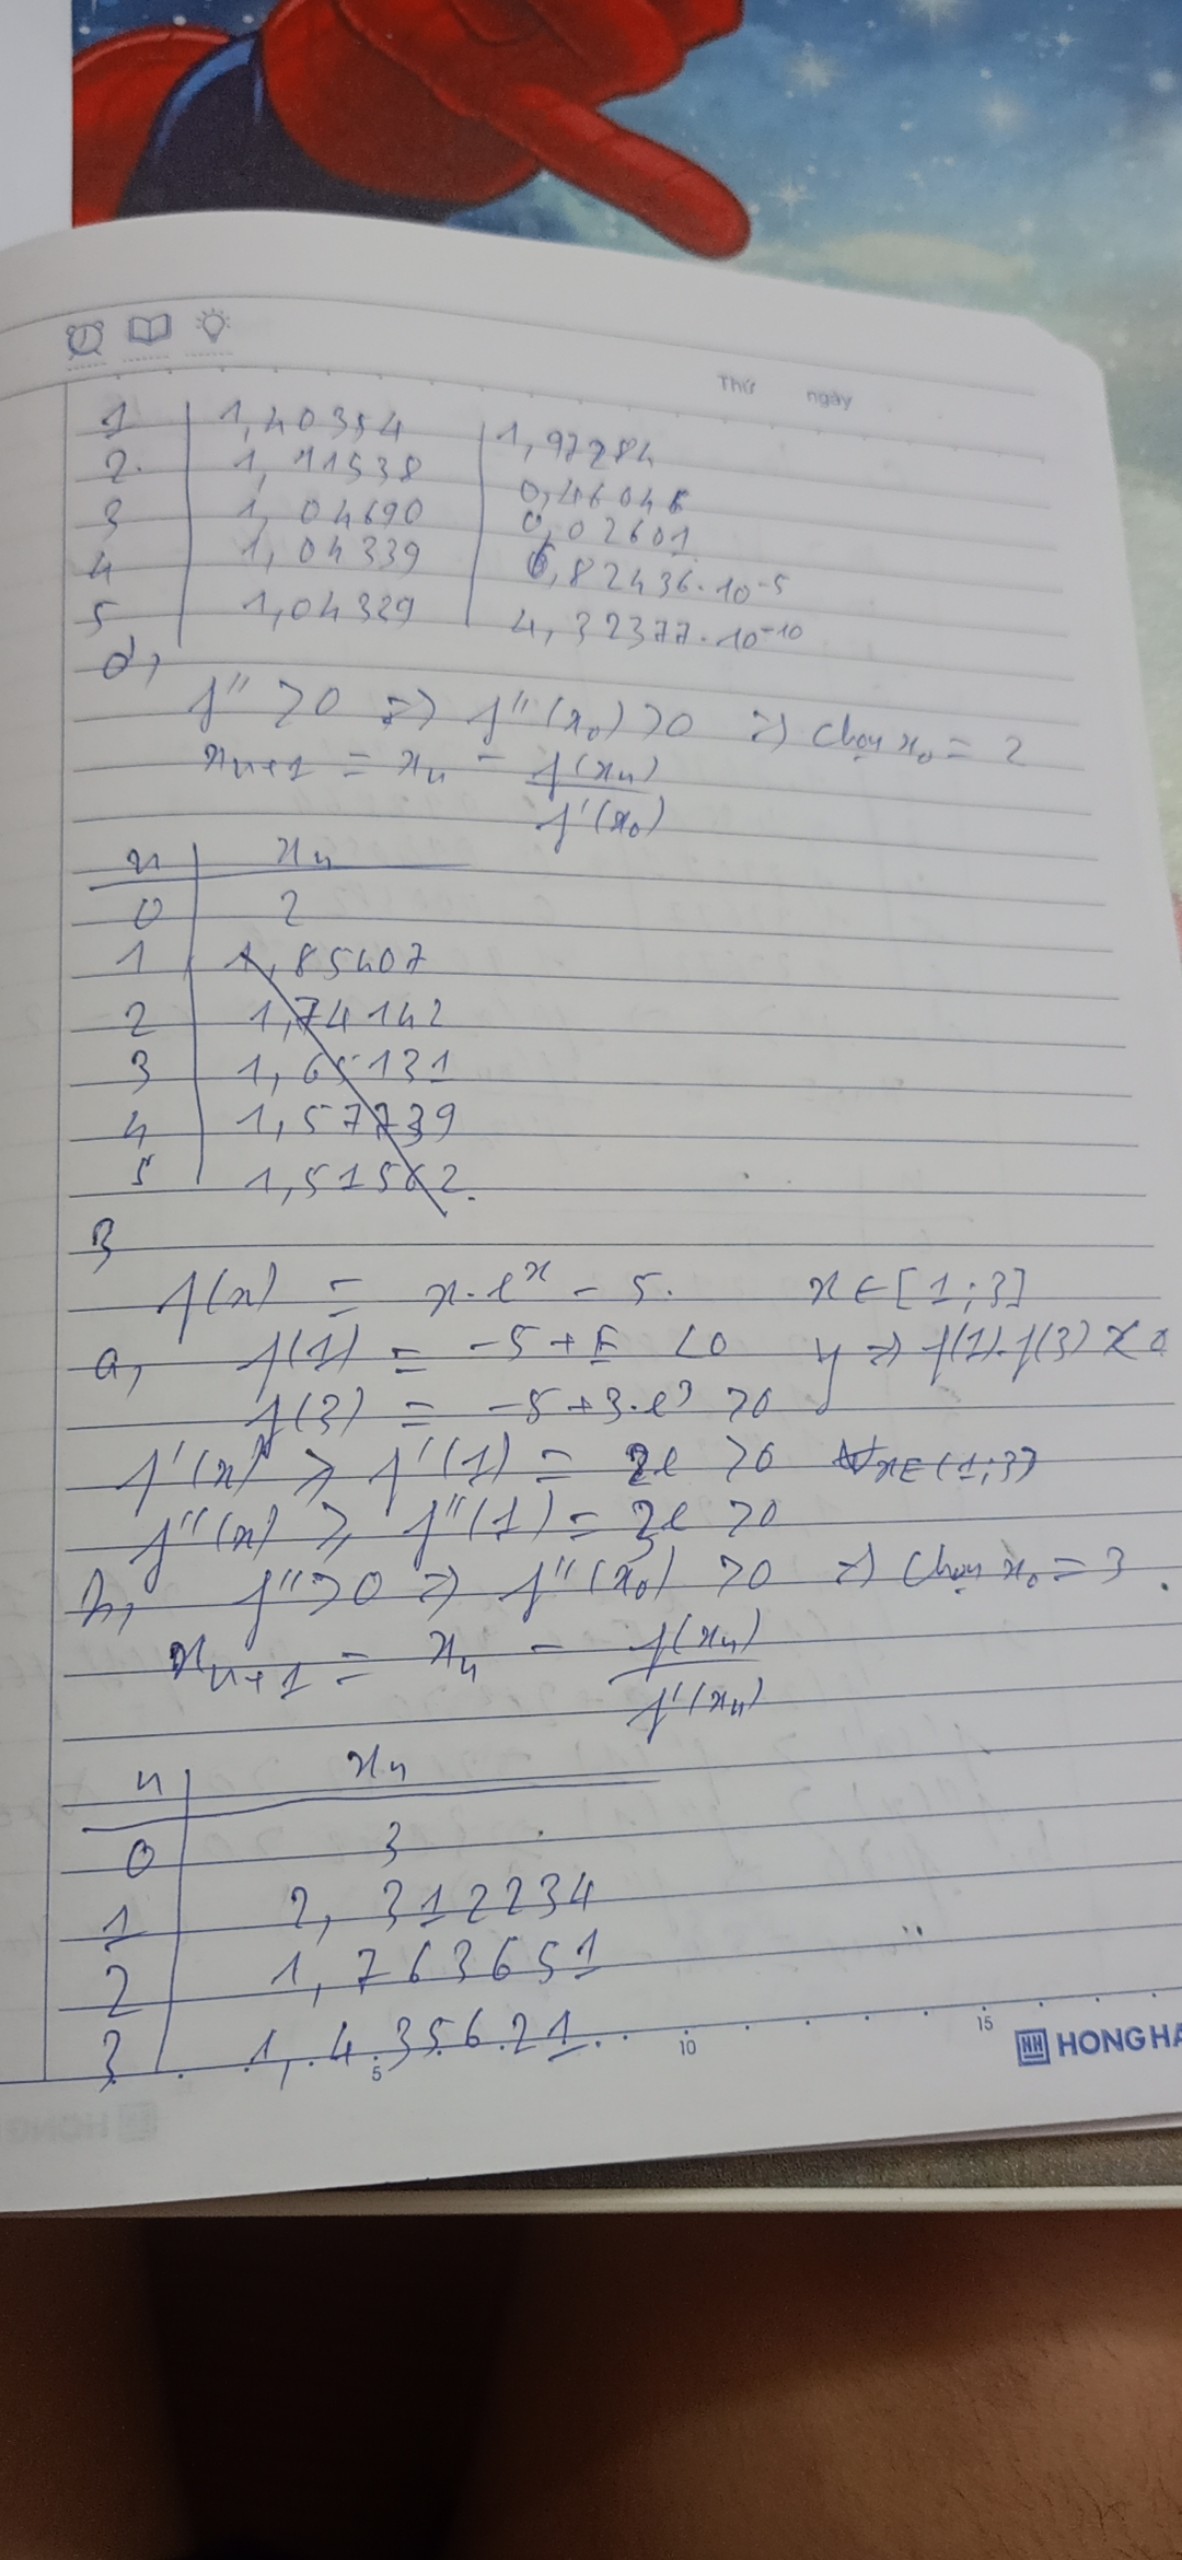 Thứ ngày
1 1,40354 1,97284
2. 1,11538 0,46046
3 1,04690 0,02601
4 1,04339 6,82436.10⁻⁵
5 1,04329 4,32377.10⁻¹⁰
d,
f'' > 0 => f''(x₀) > 0 => chọn x₀ = 2
xₙ₊₁ = xₙ - f(xₙ) / f'(x₀)
n xₙ
0 2
1 1,85407
2 1,74142
3 1,65131
4 1,57739
5 1,51562.
3
f(x) = x.eˣ - 5. x ∈ [1;3]
a, f(1) = -5 + e < 0 } => f(1).f(3) < 0
f(3) = -5 + 3.e³ > 0
f'(x) ⩾ f'(1) = 2e > 0 ∀x∈(1;3)
f''(x) ⩾ f''(1) = 3e > 0
b, f'' > 0 => f''(x₀) > 0 => chọn x₀ = 3
xₙ₊₁ = xₙ - f(xₙ) / f'(xₙ)
n xₙ
0 3
1 2,312234
2 1,763651
3 1,435621
5 10 15
HH HONG HA